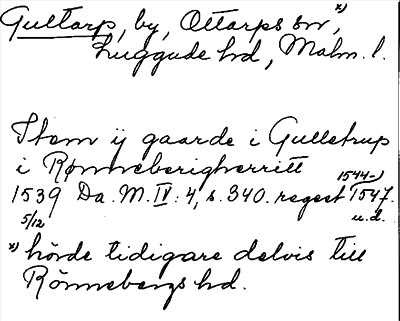 Gultarp, by, Ottarps sn *),
Luggude hd, Malm. l.
Item ij gaarde i Gulletrup
i Rønneberigherritt
1544-)
1539 Da. M. IV: 4, s. 340. regest 1547.
5/12 u.d.
*) hörde tidigare delvis till
Rönnebergs hd.